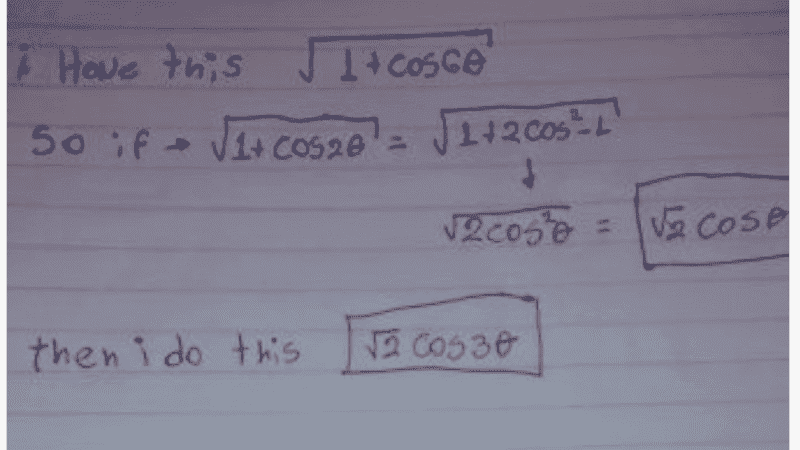 i Have this √1+cos6θ
So if → √1+cos2θ = √1+2cos²-1
↓
√2cos²θ = √2 cosθ
then i do this √2 cos3θ